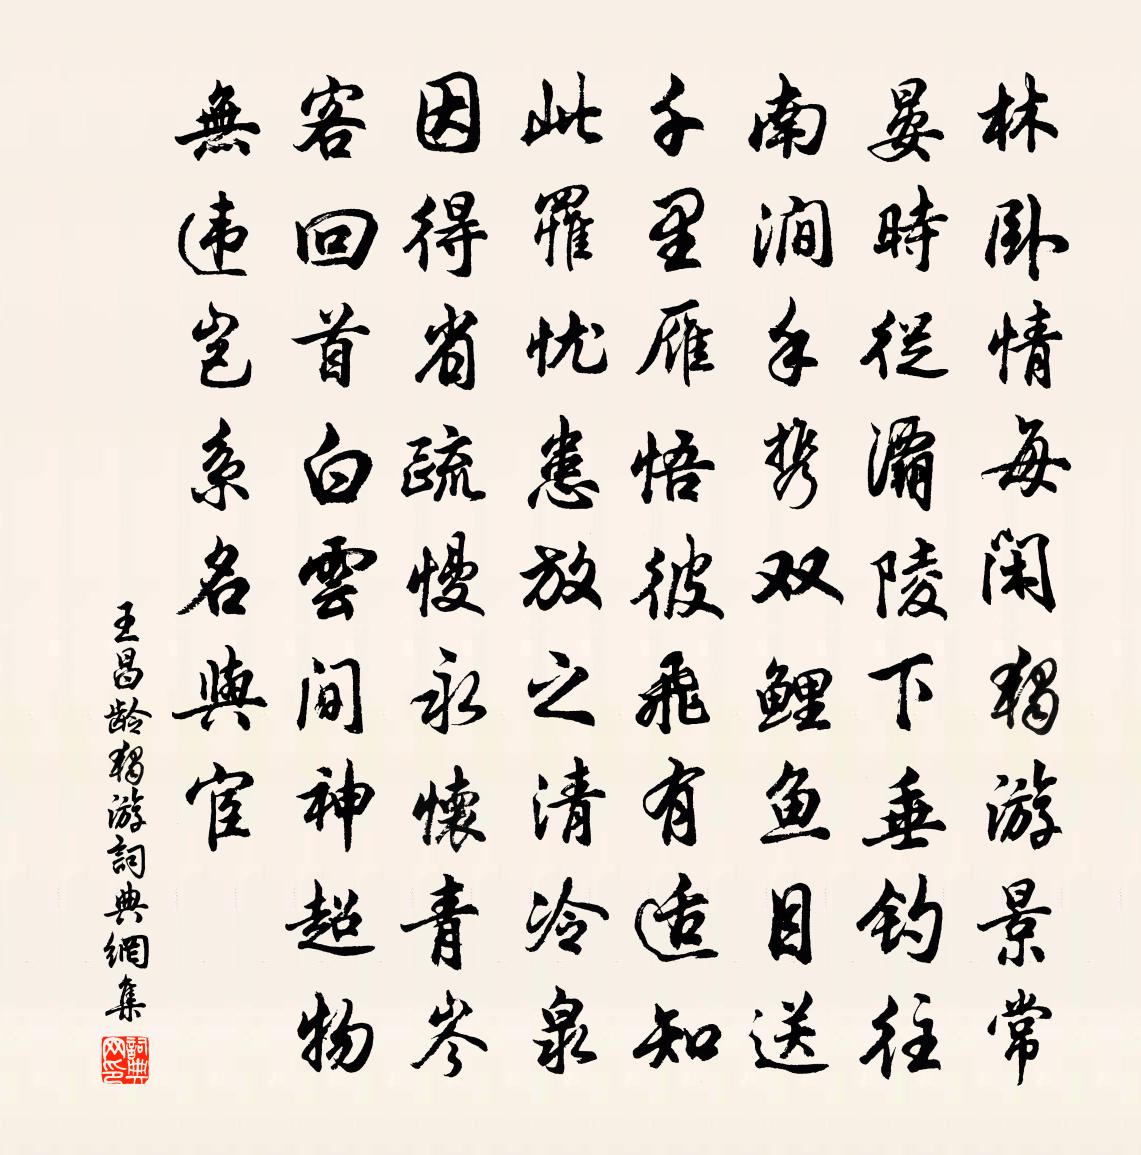 林卧情每闲獨游景常
晏時從灞陵下垂钓往
南涧手携双鲤鱼目送
千里雁悟彼飛有适知
此罹忧患放之清冷泉
因得省疏慢永懷青岑
客回首白雲间神超物
無违岂系名與宦
王昌龄獨游詞典網集
詞典网印